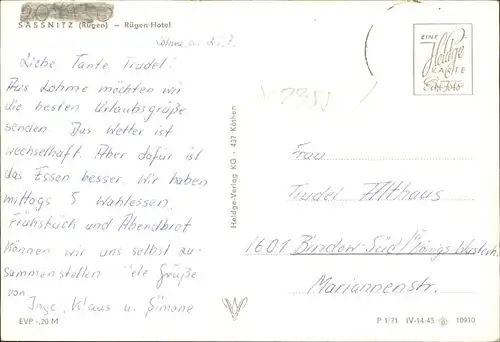 SASSNITZ (Rügen) — Rügen-Hotel
Lohme, a.
Liebe Tante Trudel!
Aus Lohme möchten wir
die besten Urlaubsgrüße
senden. Das Wetter ist
wechselhaft. Aber dafür ist
das Essen besser. Wir haben
mittags 5 Wahlessen.
Frühstück und Abendbrot
können wir uns selbst zu-
sammenstellen Viele Grüße
von Inge, Klaus u. Simone
EVP -,20 M
Heldge-Verlag KG · 437 Köthen
EINE
Heldge
KARTE
Echt Foto
Frau
Trudel Althaus
1601 Bindow-Süd / Königs Wusterh.
Mariannenstr.
P 1/71 IV-14-45 10910